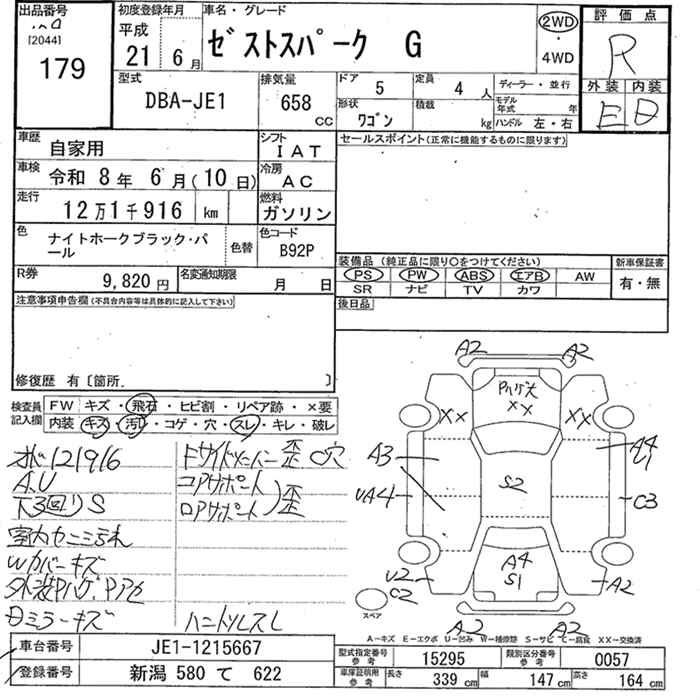 出品番号
[2044]
179
初度登録年月
平成
21 6月
車名・グレード
ゼストスパーク G
2WD
・
4WD
評価点
R
外装 内装
E D
型式
DBA-JE1
排気量
658
CC
ドア
5
定員
4 人
形状
ワゴン
積載
kg
ディーラー・並行
モデル年式 年
ハンドル 左・右
車歴
自家用
シフト
IAT
車検
令和 8年 6月(10日)
冷房
AC
走行
12万1千916 km
燃料
ガソリン
色
ナイトホークブラック・パール
色替
色コード
B92P
R券
9,820円
名変通知期限
月 日
セールスポイント(正常に機能するものに限ります)
装備品 (純正品に限り○をつけてください)
PS PW ABS エアB AW
SR ナビ TV カワ
新車保証書
有・無
後日品
注意事項申告欄(不具合内容等は具体的に記入して下さい)
修復歴 有〔箇所. 〕
検査員
記入欄
FW キズ・飛石・ヒビ割・リペア跡・×要
内装 キズ・汚れ・コゲ・穴・スレ・キレ・破レ
121916
A.U
下3回りS
Wカバーキズ
コアサポート
ロアサポート
歪
歪 C穴
ミラーキズ
ハンドルスレ
A2 A2
パハゲ大
XX
XX XX
A3
A4
U1
UA4
S2
C3
A4
S1
U2
C2
A2
スペア
A2 A2
A-キズ E-エクボ U-凹み W-補修跡 S-サビ C-腐食 XX-交換済
車台番号
JE1-1215667
登録番号
新潟 580 て 622
型式指定番号
参考
15295
類別区分番号
参考
0057
車庫証明用
参考
長さ 339 cm 幅 147 cm 高さ 164 cm